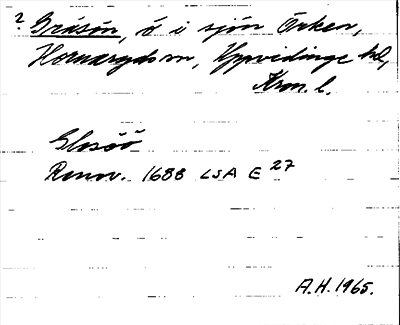 ? Gråsön, ö i sjön Örken,
Hornaryds sn, Uppvidinge hd,
Kron. l.
Glosöö
Renov. 1688 LSA E 27
A.H. 1965.